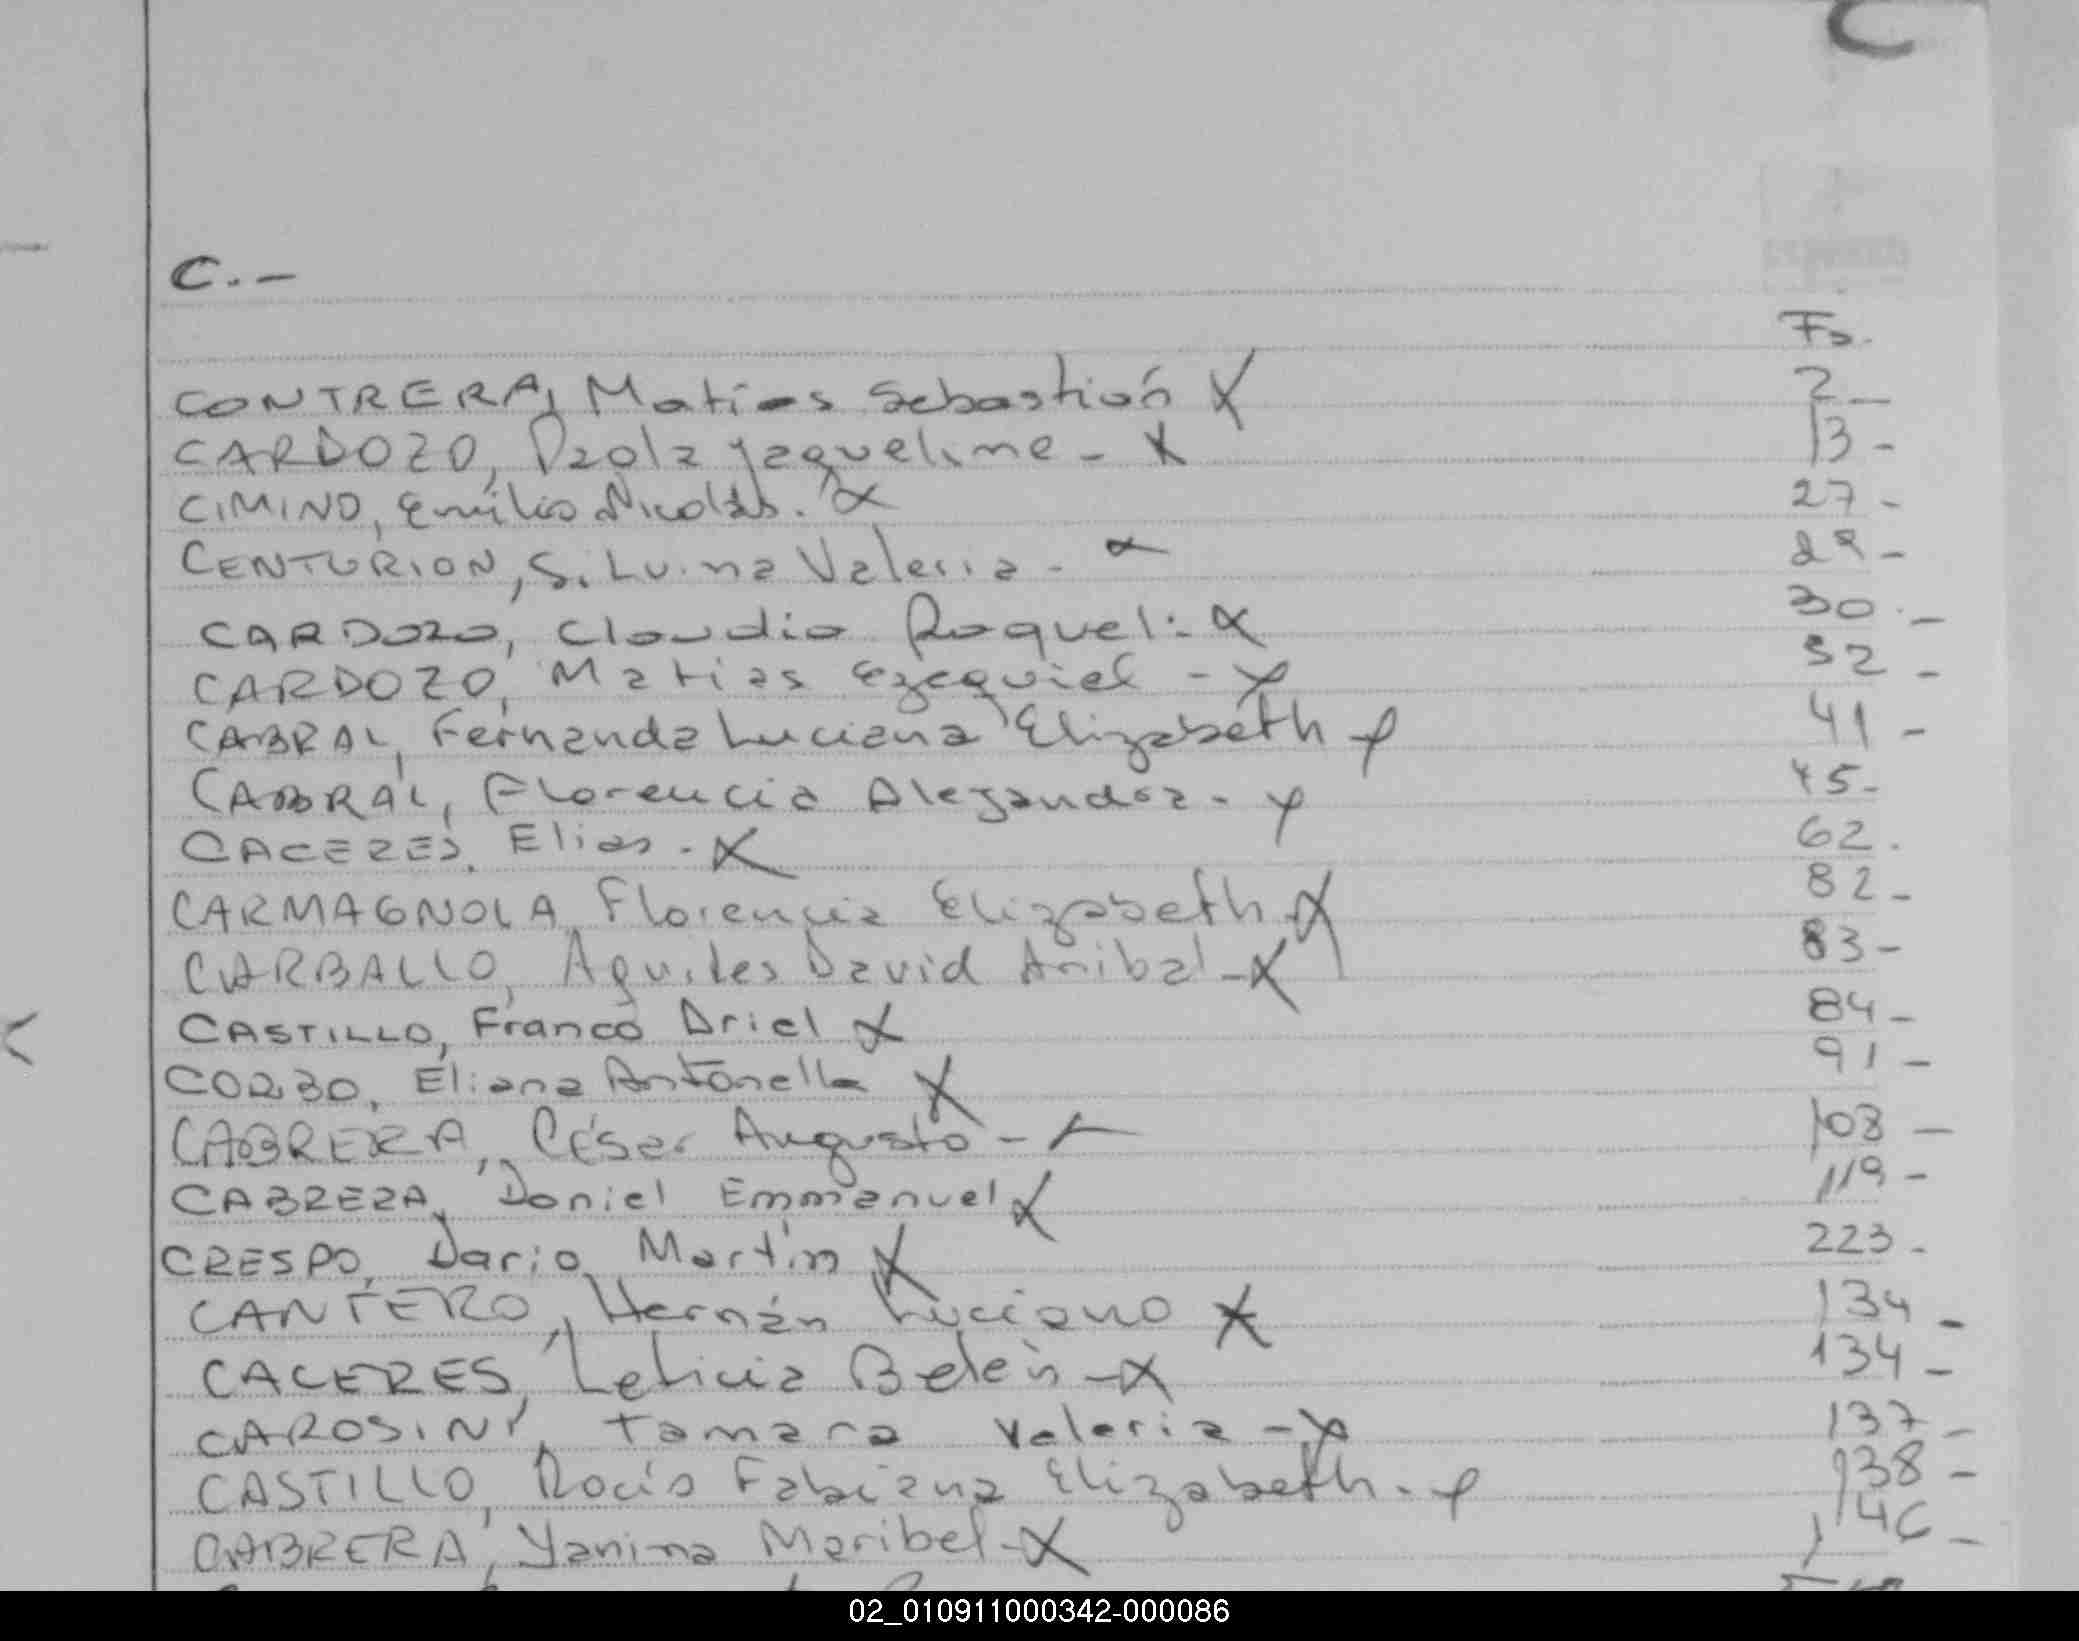 C
C.-
Fs.
CONTRERA, Matías Sebastián X 2-
CARDOZO, Paola Yaqueline - X 13-
CIMINO, Emilio Nicolás. X 27-
CENTURION, Siluina Valeria - X 29-
CARDOZO, Claudia Raquel - X 30-
CARDOZO, Matias Ezequiel - X 32-
CABRAL, Fernanda Luciana Elizabeth X 41-
CABRAL, Florencia Alejandra - X 45-
CACERES, Elias - X 62.
CARMAGNOLA, Florencia Elizabeth X 82-
CARBALLO, Aquiles David Anibal - X 83-
CASTILLO, Franco Ariel X 84-
CORBO, Eliana Antonella X 91-
CABRERA, César Augusto - X 108-
CABRERA, Daniel Emmanuel X 119-
CRESPO, Dario Martín X 223-
CANTERO, Hernán Luciano X 134-
CACERES, Leticia Belén - X 134-
CAROSINI, Tamara Valeria - X 137-
CASTILLO, Rocío Fabiana Elizabeth - X 138-
CABRERA, Yanina Maribel - X 146-
02_010911000342-000086